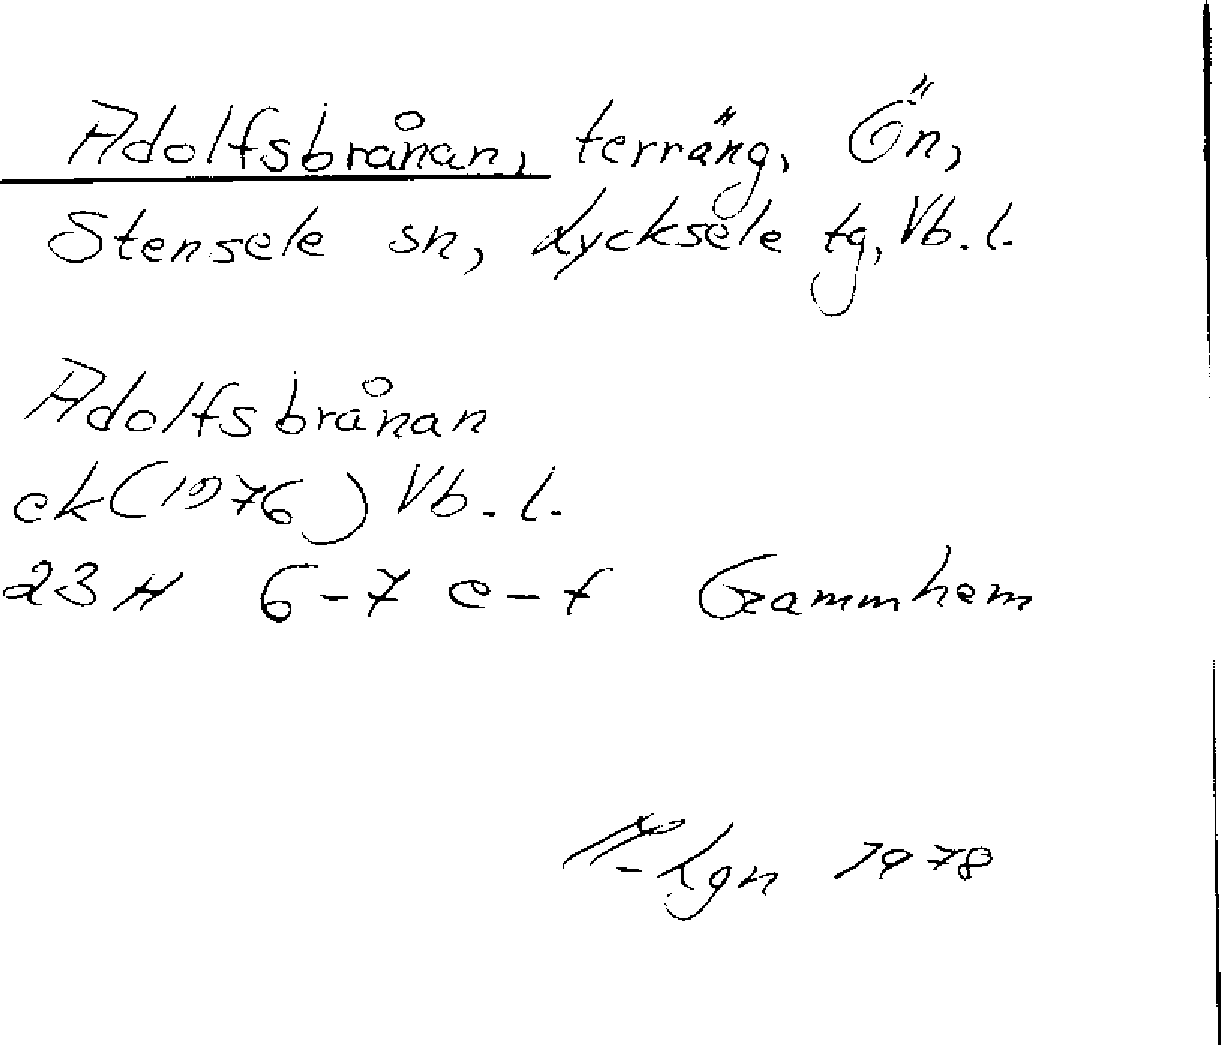 Adolfsbrånan, terräng, Ön,
Stensele sn, Lycksele tg, Vb. l.
Adolfsbrånan
ek (1976) Vb. l.
23 H 6-7 e-f Grammhem
-Lgn 1978